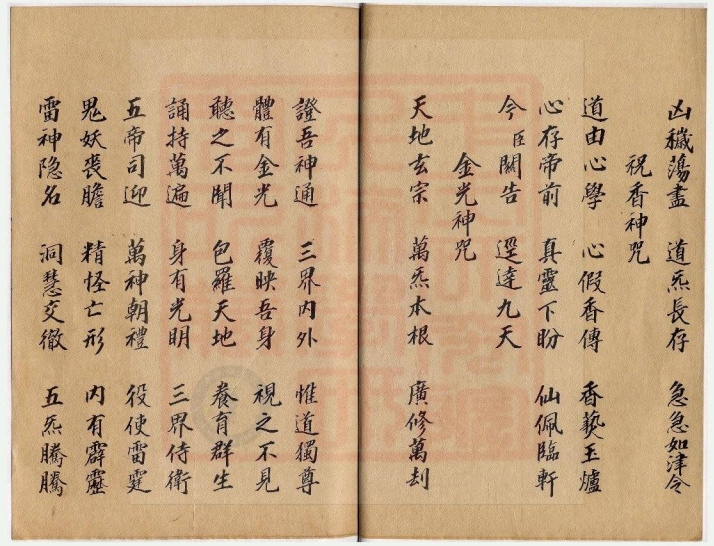 凶穢蕩盡　道炁長存　急急如律令
祝香神咒
道由心學　心假香傳　香爇玉爐
心存帝前　真靈下盼　仙佩臨軒
今臣關告　逕達九天
金光神咒
天地玄宗　萬炁本根　廣修萬刦
證吾神通　三界內外　惟道獨尊
體有金光　覆映吾身　視之不見
聽之不聞　包羅天地　養育群生
誦持萬遍　身有光明　三界侍衛
五帝司迎　萬神朝禮　役使雷霆
鬼妖喪膽　精怪亡形　內有霹靂
雷神隐名　洞慧交徹　五炁騰騰